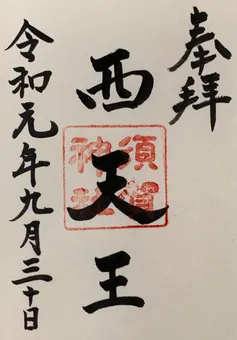 奉拝
西天王
須賀神社
令和元年九月三十日